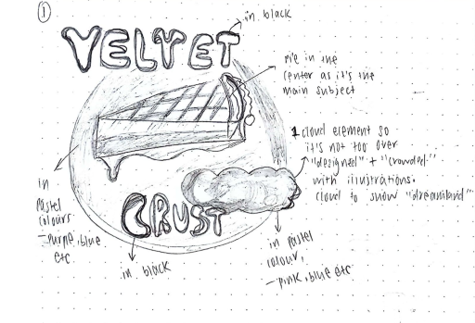 ①
in black
VELVET
pie in the
center as it's the
main subject
1 cloud element so
it's not too over
"designed" + "crowded"
with illustrations.
cloud to show "dreamland"
in
pastel
colours
- purple, blue
etc
CRUST
in black
in pastel
colour,
- pink, blue etc